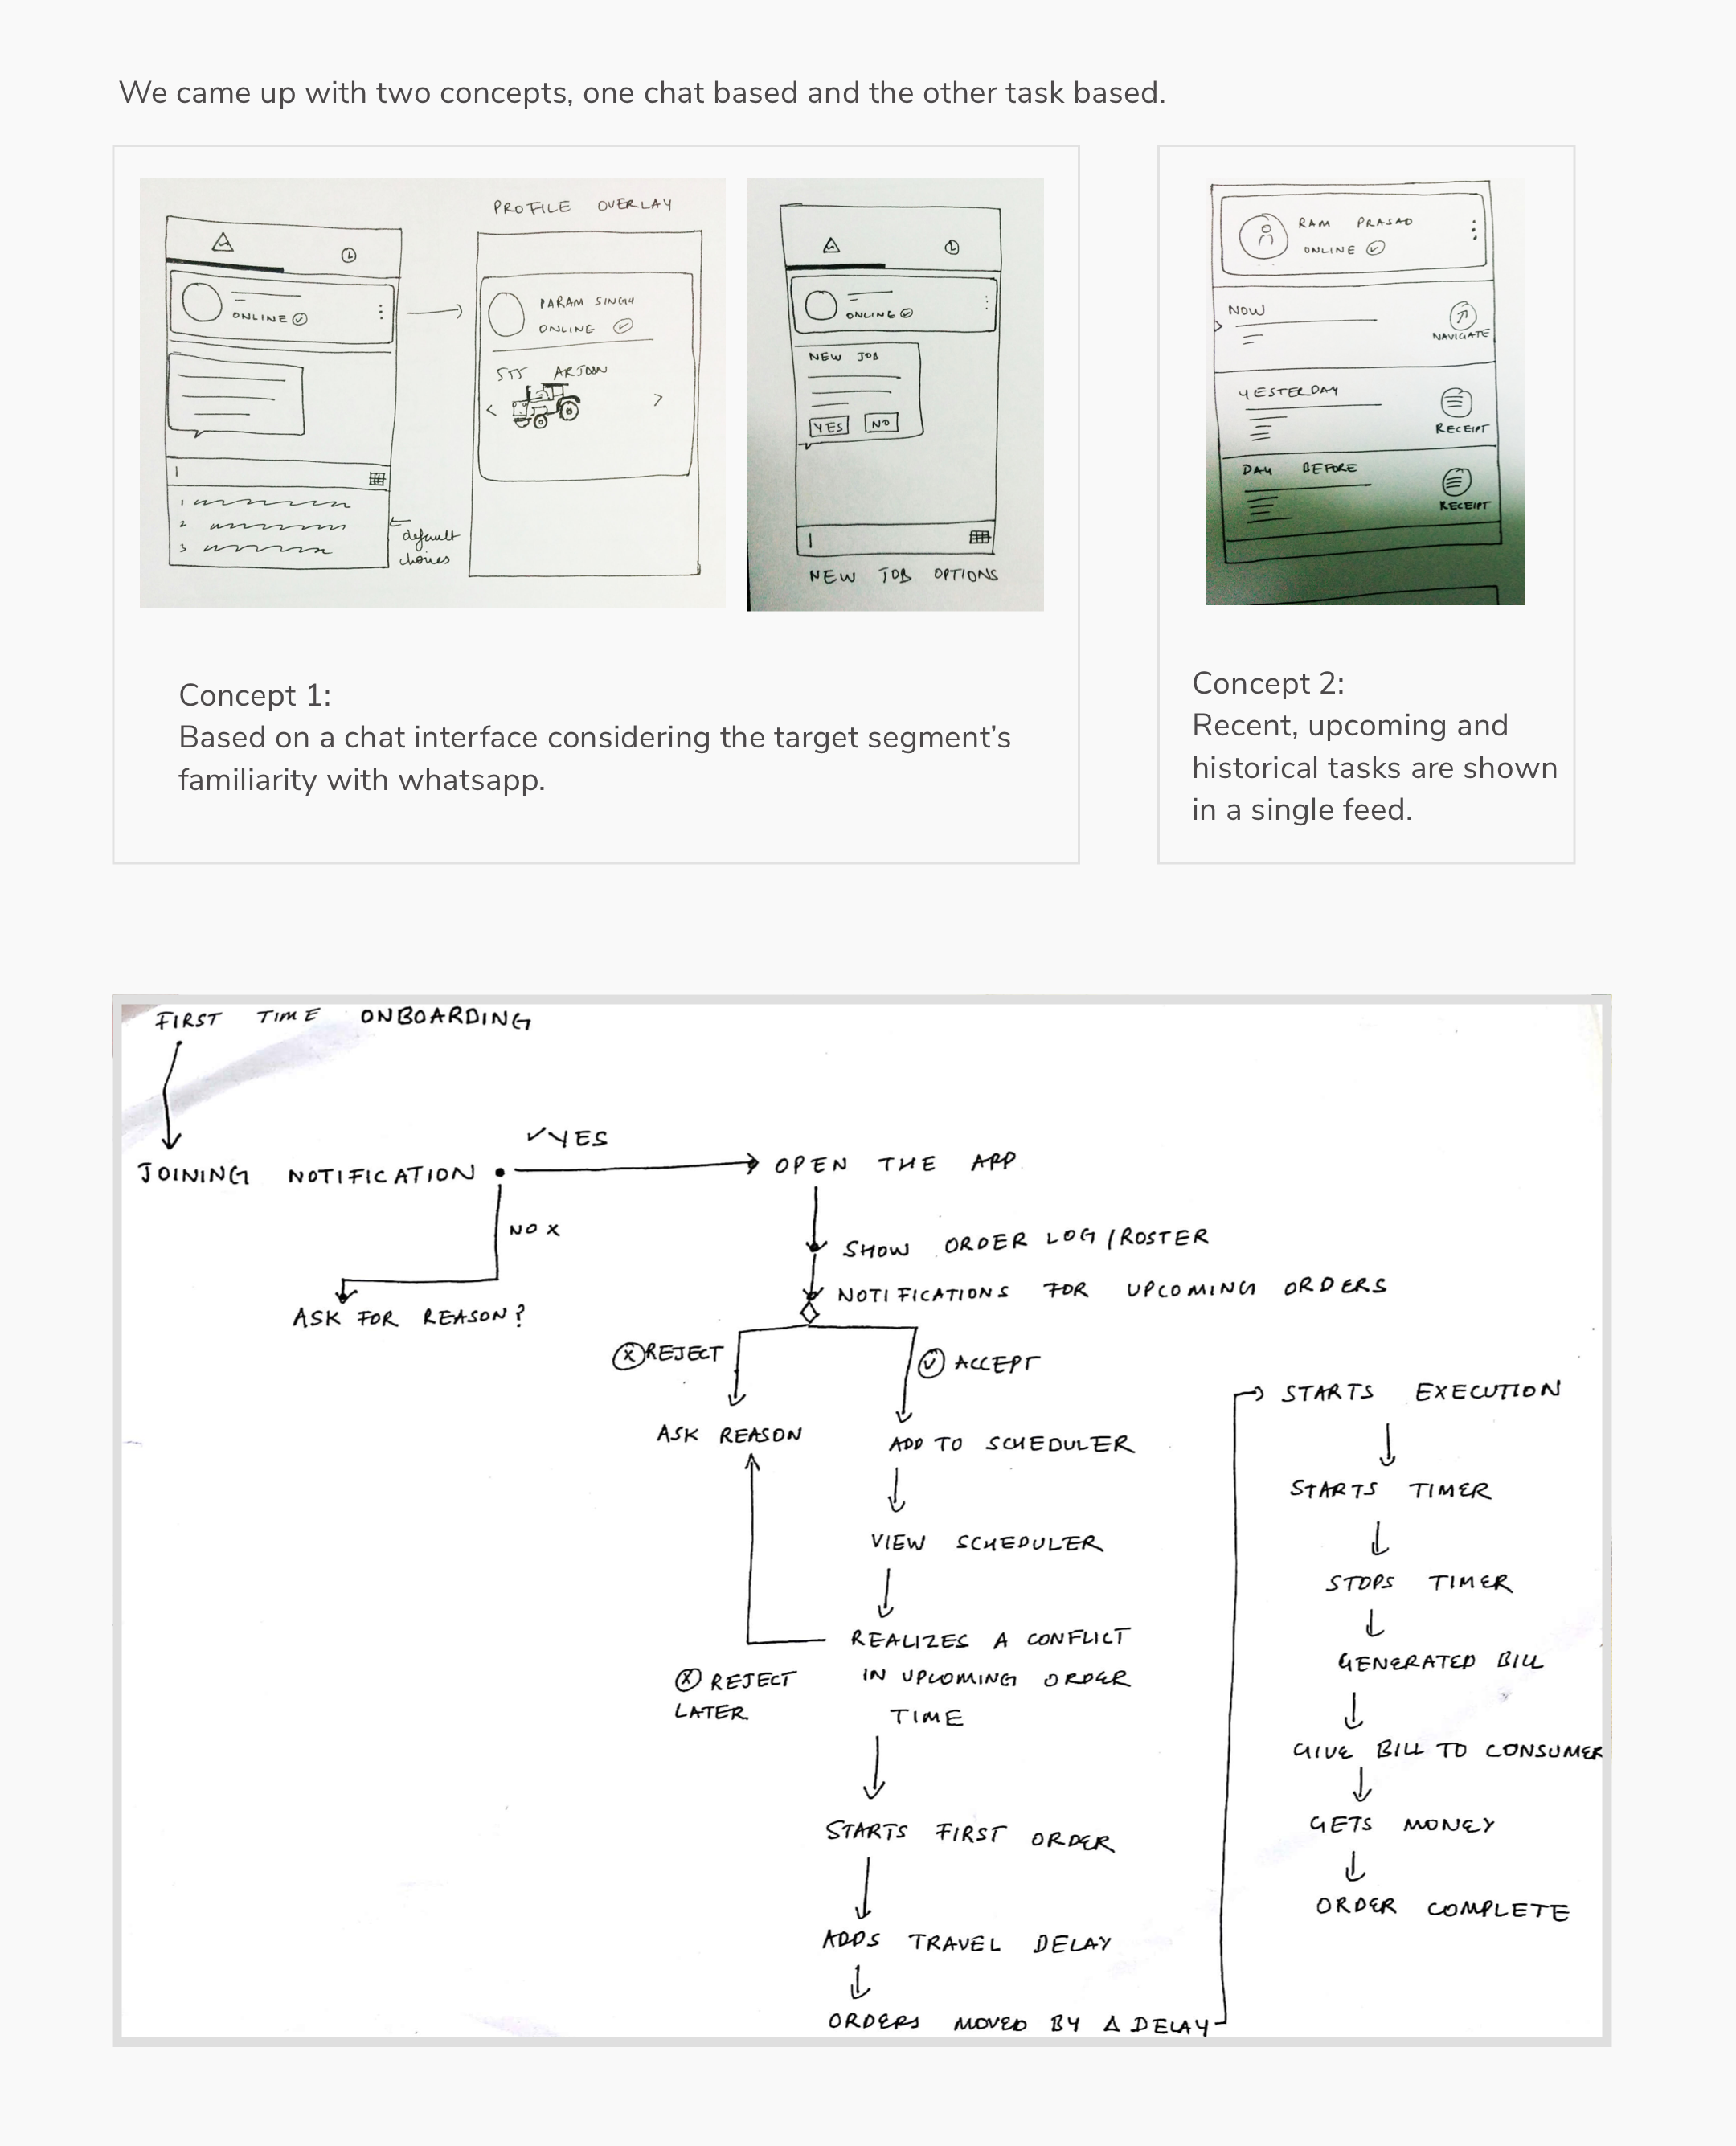 We came up with two concepts, one chat based and the other task based.
ONLINE
default
choices
1
2
3
PROFILE OVERLAY
PARAM SINGH
ONLINE
575 ARJUN
ONLINE
NEW JOB
YES NO
NEW JOB OPTIONS
Concept 1:
Based on a chat interface considering the target segment’s
familiarity with whatsapp.
RAM PRASAD
ONLINE
NOW
NAVIGATE
YESTERDAY
RECEIPT
DAY BEFORE
RECEIPT
Concept 2:
Recent, upcoming and
historical tasks are shown
in a single feed.
FIRST TIME ONBOARDING
JOINING NOTIFICATION
YES
NO X
ASK FOR REASON?
OPEN THE APP
SHOW ORDER LOG/ROSTER
NOTIFICATIONS FOR UPCOMING ORDERS
X REJECT
ACCEPT
ASK REASON
ADD TO SCHEDULER
VIEW SCHEDULER
REALIZES A CONFLICT
IN UPCOMING ORDER
TIME
X REJECT
LATER
STARTS FIRST ORDER
ADDS TRAVEL DELAY
ORDERS MOVED BY Δ DELAY
STARTS EXECUTION
STARTS TIMER
STOPS TIMER
GENERATED BILL
GIVE BILL TO CONSUMER
GETS MONEY
ORDER COMPLETE